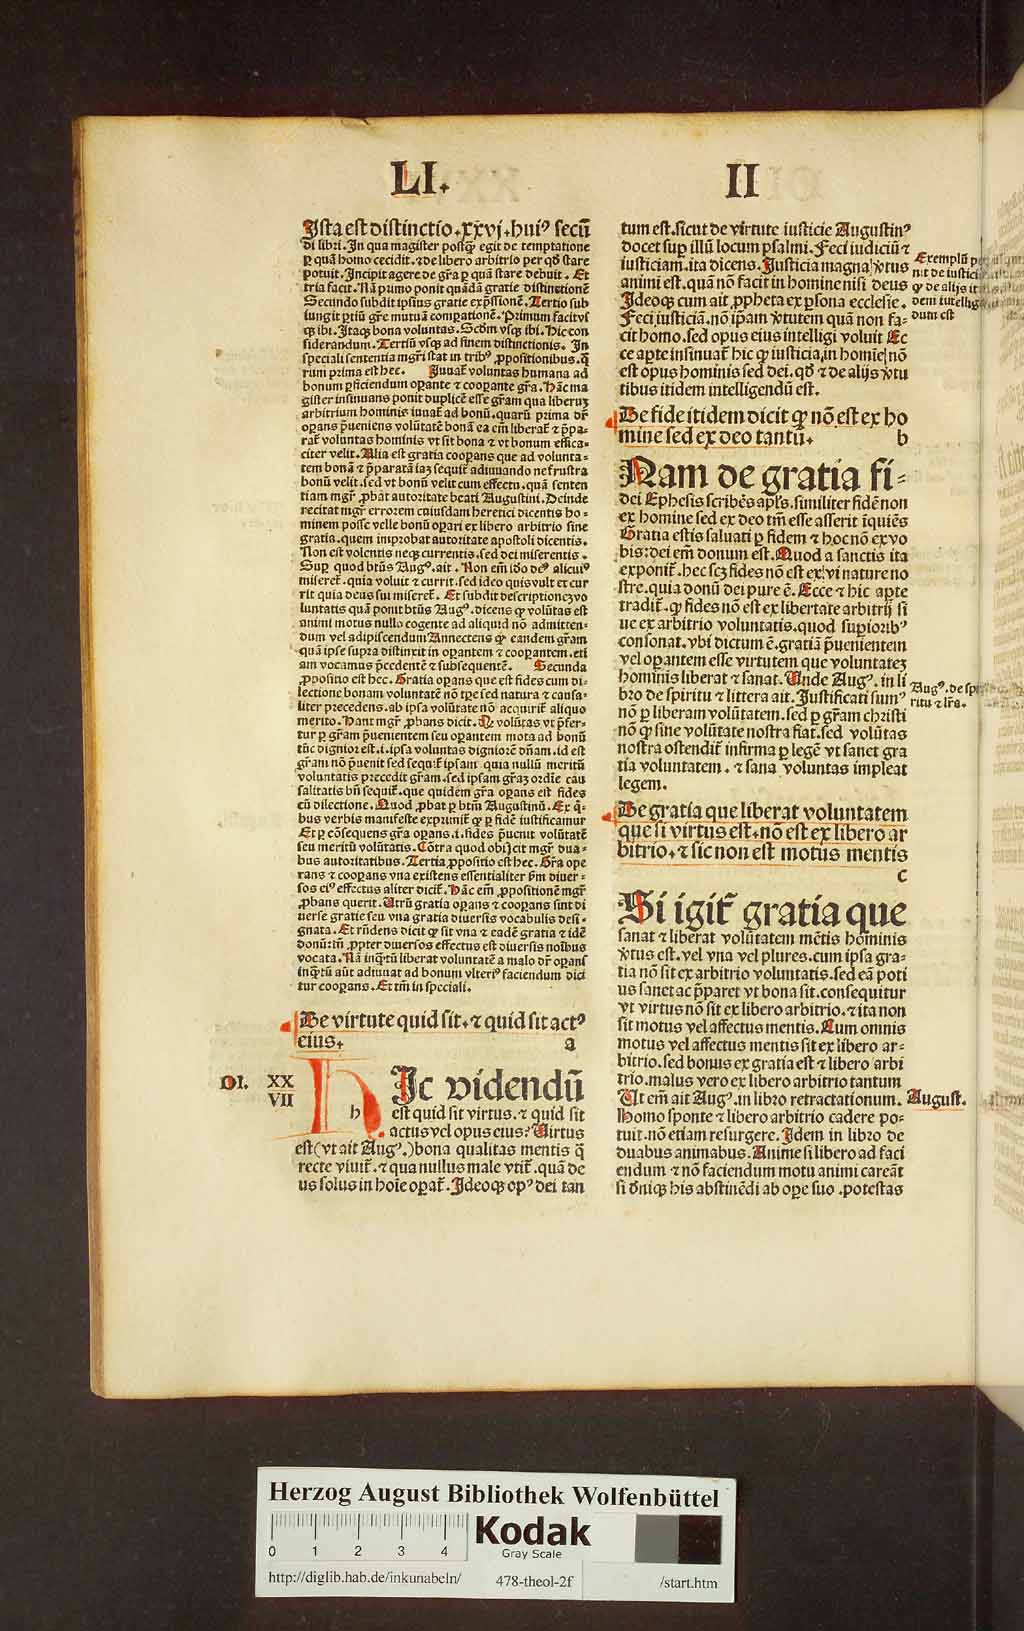 LI.
II
Ista est distinctio.xxvj.huiꝰ secū
di libri. In qua magister postqꝫ egit de temptatione
ꝑ quā homo cecidit.⁊ de libero arbitrio per qd̄ stare
potuit. Incipit agere de gr̄a ꝑ quā stare debuit. Et
tria facit. Nā primo ponit quādā gratie distinctionē
Secundo subdit ipsius gratie exp̄ssionē. Tertio sub
iungit ꝑtiū gr̄e mutuā comꝑationē. Primum facit vsqꝫ
qꝫ ibi. Itaqꝫ bona voluntas. Scd̄m vsqꝫ ibi. Hic con
siderandum. Tertiū vsqꝫ ad finem distinctionis. In
speciali sententia mgr̄i stat in tribꝰ ꝓpositionibus. q̄
rum prima est hec. Iuuat̄ voluntas humana ad
bonum ꝑficiendum oꝑante ⁊ cooꝑante gr̄a. Hāc ma
gister insinuans ponit duplicē esse gr̄am qua liberuꝫ
arbitrium hominis iuuat̄ ad bonū. quarū prima dr̄
oꝑans p̄ueniens volūtatē bonā ea em̄ liberat̄ ⁊ p̄pa-
rat̄ voluntas hominis vt sit bona ⁊ vt bonum effica-
citer velit. Alia est gratia cooꝑans que ad volunta-
tem bonā ⁊ p̄paratā iaꝫ sequit̄ adiuuando ne frustra
bonū velit. sed vt bonū velit cum effectu. quā senten
tiam mgr̄ ꝓbat autoritate beati Augustini. Deinde
recitat mgr̄ errorem cuiusdam heretici dicentis ho-
minem posse velle bonū oꝑari ex libero arbitrio sine
gratia. quem improbat autoritate apostoli dicentis.
Non est volentis neqꝫ currentis. sed dei miserentis.
Suꝑ quod btūs Augꝰ. ait. Non em̄ iō deꝰ alicuiꝰ
miseret̄. quia voluit ⁊ currit. sed ideo quis vult et cur
rit quia deus sui miseret̄. Et subdit descriptioneꝫ vo
luntatis quā ponit btūs Augꝰ. dicens ꝙ volūtas est
animi motus nullo cogente ad aliquid nō admitten-
dum vel adipiscendum Annectens ꝙ eandem gr̄am
quā ipse supra distinxit in oꝑantem ⁊ cooꝑantem. eti
am vocamus p̄cedentē ⁊ subsequentē. Secunda
ꝓpositio est hec. Gratia oꝑans que est fides cum di-
lectione bonam voluntatē nō tꝑe sed natura ⁊ causa-
liter precedens. ab ipsa volūtate nō acquirit̄ aliquo
merito. Hanc mgr̄ ꝓbans dicit.
tur ꝑ gr̄am p̄uenientem seu oꝑantem mota ad bonū
tūc dignior est. i. ipsa voluntas digniorē dn̄am. id est
gr̄am nō p̄uenit sed sequit̄ ipsam quia nullū meritū
voluntatis precedit gr̄am. sed ipsam gr̄aꝫ ordīe cau
salitatis bn̄ sequit̄. que quidem gr̄a oꝑans est fides
cū dilectione. Quod ꝓbat ꝑ btm̄ Augustinū. Ex q̄-
bus verbis manifeste exprimit̄ ꝙ ꝑ fidē iustificamur
Et ꝑ cōsequens gr̄a oꝑans. i. fides p̄uenit volūtatē
seu meritū volūtatis. Cōtra quod obijcit mgr̄ dua-
bus autoritatibus. Tertia ꝓpositio est hec. Gr̄a oꝑe
rans ⁊ cooꝑans vna existens essentialiter scd̄m diuer-
sos eiꝰ effectus aliter dicit̄. Hāc em̄ ꝓpositionē mgr̄
ꝓbans querit. Utrū gratia oꝑans ⁊ cooꝑans sint di
uerse gratie seu vna gratia diuersis vocabulis desi-
gnata. Et rn̄dens dicit ꝙ sit vna ⁊ eadē gratia ⁊ idē
donū: tn̄ ꝓpter diuersos effectus est diuersis noībus
vocata. Nā inq̄tū liberat voluntatē a malo dr̄ oꝑans
inq̄tū aūt adiuuat ad bonum vlteriꝰ faciendum dici
tur cooꝑans. Et tm̄ in speciali.
De virtute quid sit.⁊ quid sit actꝰ
eius. a
DI. XX
VII
h
Hic videndū
est quid sit virtus.⁊ quid sit
actus vel opus eius? Virtus
est (vt ait Augꝰ.) bona qualitas mentis q̄
recte viuit̄.⁊ qua nullus male vtit̄. quā de
us solus in hoīe oꝑat̄. Ideoqꝫ opꝰ dei tan
tum est. sicut de virtute iusticie Augustinꝰ
docet suꝑ illū locum psalmi. Feci iudiciū ⁊
iusticiam. ita dicens. Iusticia magna v̄tus
animi est. quā nō facit in homine nisi deus
Ideoqꝫ cum ait ꝓpheta ex ꝑsona ecclesie.
Feci iusticiā. nō ip̄am v̄tutem quā non fa-
cit homo. sed opus eius intelligi voluit Ec
ce aꝑte insinuat̄ hic ꝙ iusticia in homīe nō
est opus hominis sed dei. qd̄ ⁊ de alijs v̄tu
tibus itidem intelligendū est.
Exemplū
nit de iustici
ꝙ de alijs it
dem intellig
dum est
De fide itidem dicit ꝙ nō est ex ho
mine sed ex deo tantū. b
Nam de gratia fi-
dei Ephesis scribēs apl̄s. similiter fidē non
ex homine sed ex deo tm̄ esse asserit īquiēs
Gratia estis saluati ꝑ fidem ⁊ hoc nō ex vo
bis: dei em̄ donum est. Quod a sanctis ita
exponit̄. hec scꝫ fides nō est ex vi nature no
stre. quia donū dei pure ē. Ecce ⁊ hic aꝑte
tradit̄. ꝙ fides nō est ex libertate arbitrij si
ue ex arbitrio voluntatis. quod suꝑioribꝰ
consonat. vbi dictum ē. gratiā p̄uenientem
vel oꝑantem esse virtutem que voluntateꝫ
hominis liberat ⁊ sanat. Unde Augꝰ. in li
bro de spiritu ⁊ littera ait. Iustificati sumꝰ
nō ꝑ liberam volūtatem. sed ꝑ gr̄am christi
nō ꝙ sine volūtate nostra fiat. sed volūtas
nostra ostendit̄ infirma ꝑ legē vt sanet gra
tia voluntatem. ⁊ sana voluntas impleat
legem.
Augꝰ. de spi
ritu ⁊ lr̄a.
De gratia que liberat voluntatem
que si virtus est. nō est ex libero ar
bitrio.⁊ sic non est motus mentis
c
Si igit̄ gratia que
sanat ⁊ liberat volūtatem mētis hominis
v̄tus est. vel vna vel plures. cum ipsa gra-
tia nō sit ex arbitrio voluntatis. sed eā poti
us sanet ac p̄paret vt bona sit. consequitur
vt virtus nō sit ex libero arbitrio.⁊ ita non
sit motus vel affectus mentis. Cum omnis
motus vel affectus mentis sit ex libero ar-
bitrio. sed bonus ex gratia est ⁊ libero arbi
trio. malus vero ex libero arbitrio tantum
Ut em̄ ait Augꝰ. in libro retractationum.
Homo sponte ⁊ libero arbitrio cadere po-
tuit. nō etiam resurgere. Idem in libro de
duabus animabus. Anime si libero ad faci
endum ⁊ nō faciendum motu animi careāt
si dn̄iqꝫ his abstinēdi ab oꝑe suo. potestas
August.
Herzog August Bibliothek Wolfenbüttel
0 1 2 3 4
Kodak
Gray Scale
http://diglib.hab.de/inkunabeln/ 478-theol-2f /start.htm